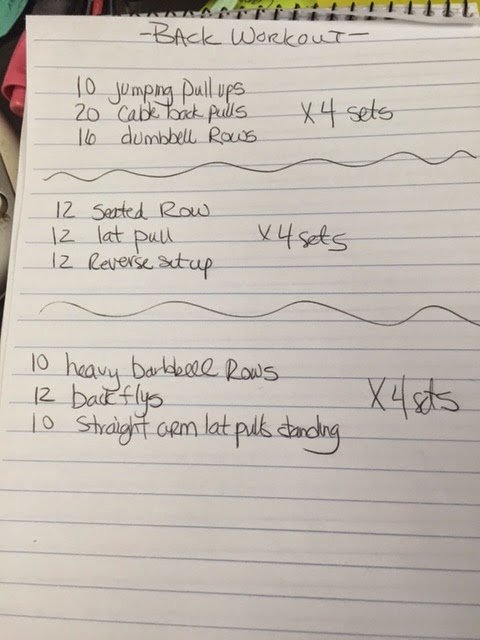 -Back Workout-
10 jumping pull ups
20 Cable back pulls X 4 sets
16 dumbbell Rows
12 Seated Row
12 lat pull X 4 sets
12 Reverse situp
10 heavy barbbell Rows
12 back flys X 4 sets
10 Straight arm lat pulls standing